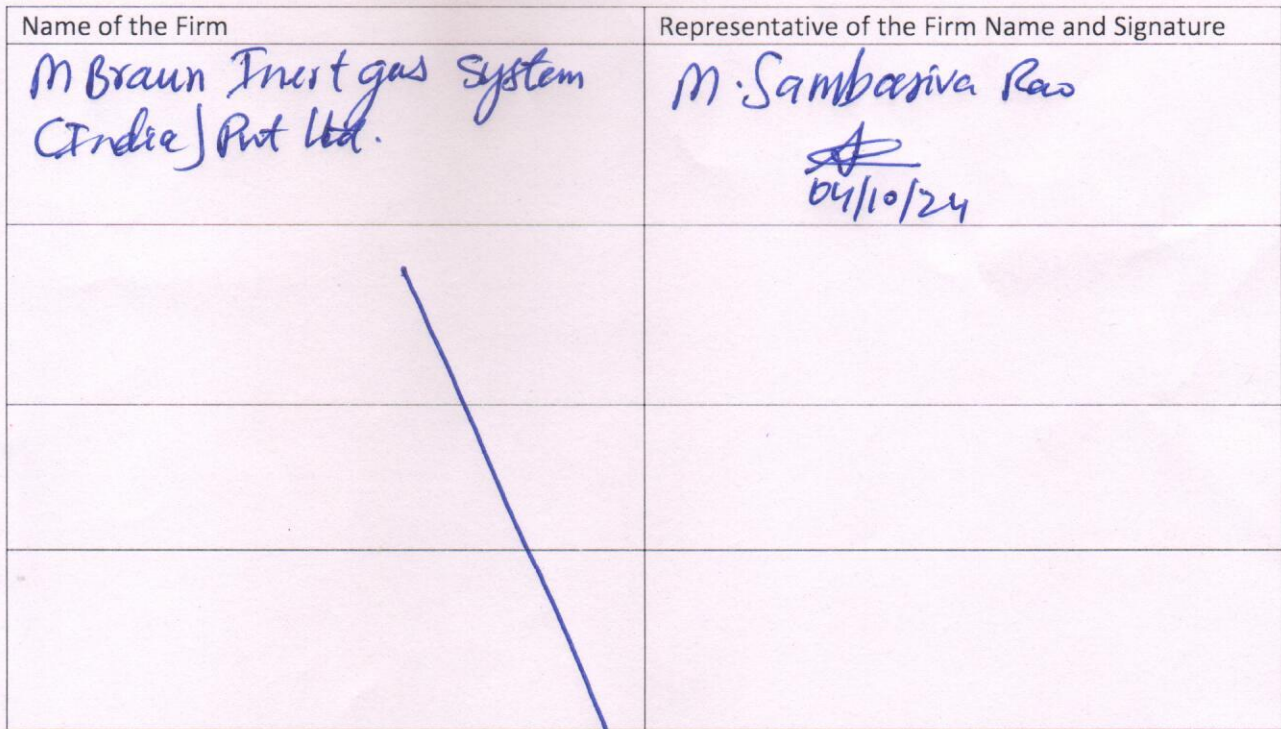 Name of the Firm
Representative of the Firm Name and Signature
M Braun Inert gas System
(India) Pvt Ltd.
M. Sambasiva Rao
04/10/24